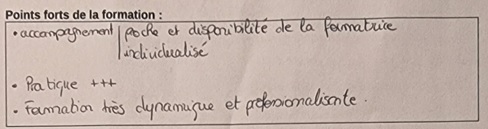 Points forts de la formation :
• accompagnement | et disponibilité de la formatrice
individualisé
• Pratique +++
• Formation très dynamique et professionnalisante.